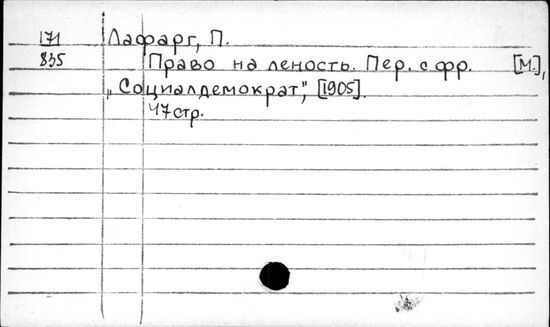 171 Лафарг, П.
835 Право на леность. Пер. с фр. [М.],
„Социалдемократ", [1905].
47 стр.